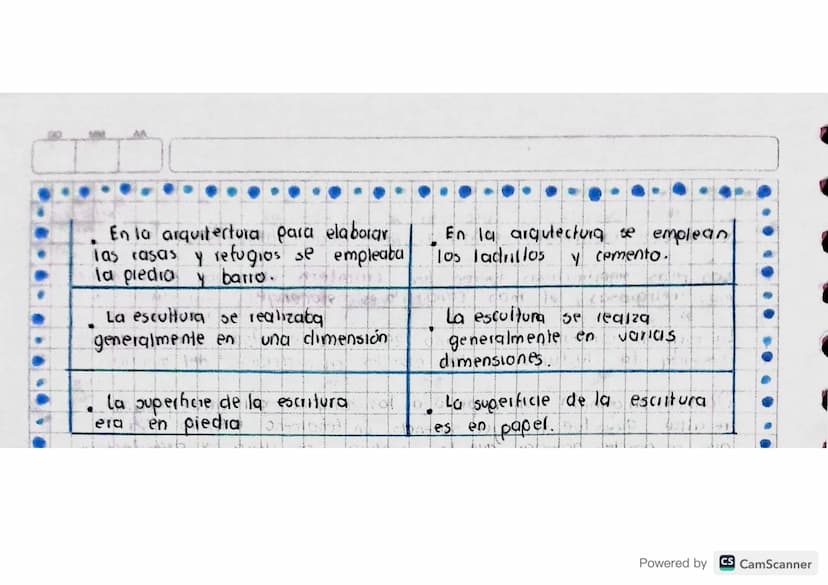 DD MM AA
. En la arquitectura para elaborar
las casas y refugios se empleaba
la piedra y barro.
. En la arqutectura se emplean
los ladrillos y cemento.
. La escultura se realizaba
generalmente en una dimensión
. La escultura se realiza
generalmente en varias
dimensiones.
. La superficie de la escritura
era en piedra
. La superficie de la escritura
es en papel.
Powered by CS CamScanner